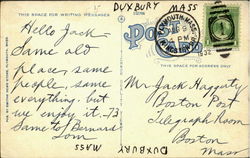 DUXBURY MASS
THIS SPACE FOR WRITING MESSAGES
Hello Jack
Same old
place, same
people, same
everything. but
we enjoy it. 73
Same to Bernard
Tom
PLYMOUTH, MASS.
4 PM
THIS SPACE FOR ADDRESS ONLY
Mr Jack Haggarty
Boston Post
Telegraph Room
Boston
Mass
DUXBURY
MASS